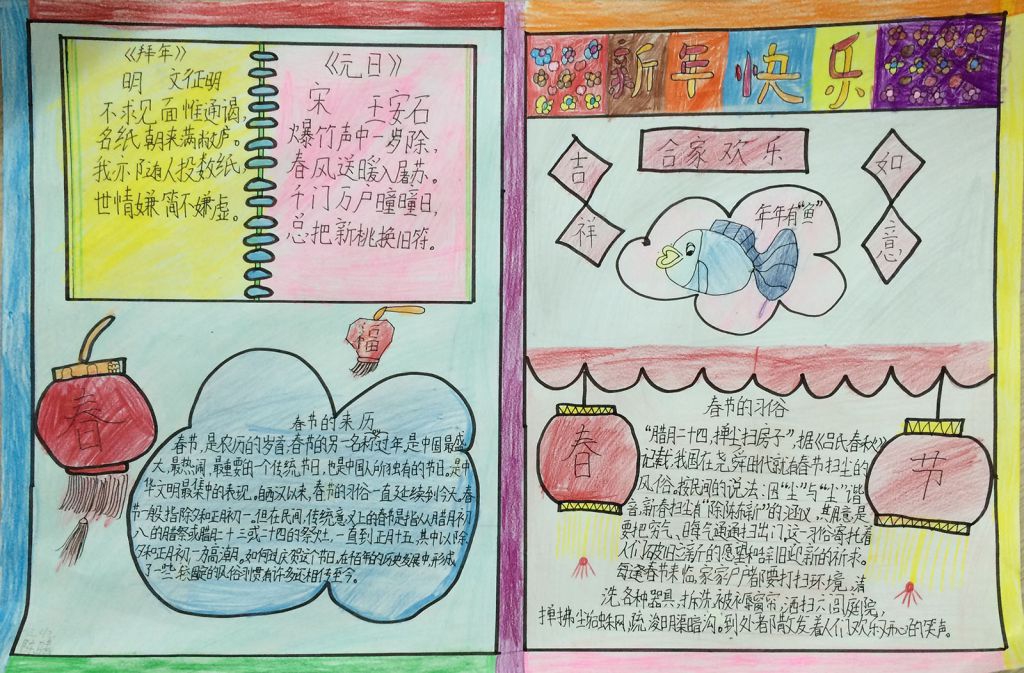 《拜年》
明 文征明
不求见面惟通谒，
名纸朝来满敝庐。
我亦随人投数纸，
世情嫌简不嫌虚。
《元日》
宋 王安石
爆竹声中一岁除，
春风送暖入屠苏。
千门万户曈曈日，
总把新桃换旧符。
福
春
春节的来历
春节，是农历的岁首，春节的另一名称过年，是中国最盛
大、最热闹、最重要的一个传统节日，也是中国人所独有的节日。是中
华文明最集中的表现。自西汉以来，春节的习俗一直延续到今天。春
节一般指除夕和正月初一。但在民间，传统意义上的春节是指从腊月初
八的腊祭或腊月二十三或二十四的祭灶，一直到正月十五，其中以除
夕和正月初一为高潮。如何过庆贺这个节日，在佰年的历史发展中，形成
了一些较固定的风俗习惯，有许多还相传至今。
新年快乐
合家欢乐
吉祥
如意
年年有“鱼”
春节的习俗
春
节
“腊月二十四，掸尘扫房子”，据《吕氏春秋》
记载，我国在尧舜时代就有春节扫尘的
风俗。按民间的说法：因“尘”与“尘”谐
音，新春扫尘有“除陈布新”的涵义，其用意是
要把穷气、晦气通通扫出门。这一习俗寄托着
人们破旧立新的愿望和辞旧迎新的祈求。
每逢春节来临，家家户户都要打扫环境，清
洗各种器具，拆洗被褥窗帘，洒扫六闾庭院，
掸拂尘垢蛛网，疏浚明渠暗沟。到处都散发着人们欢乐开心的笑声。